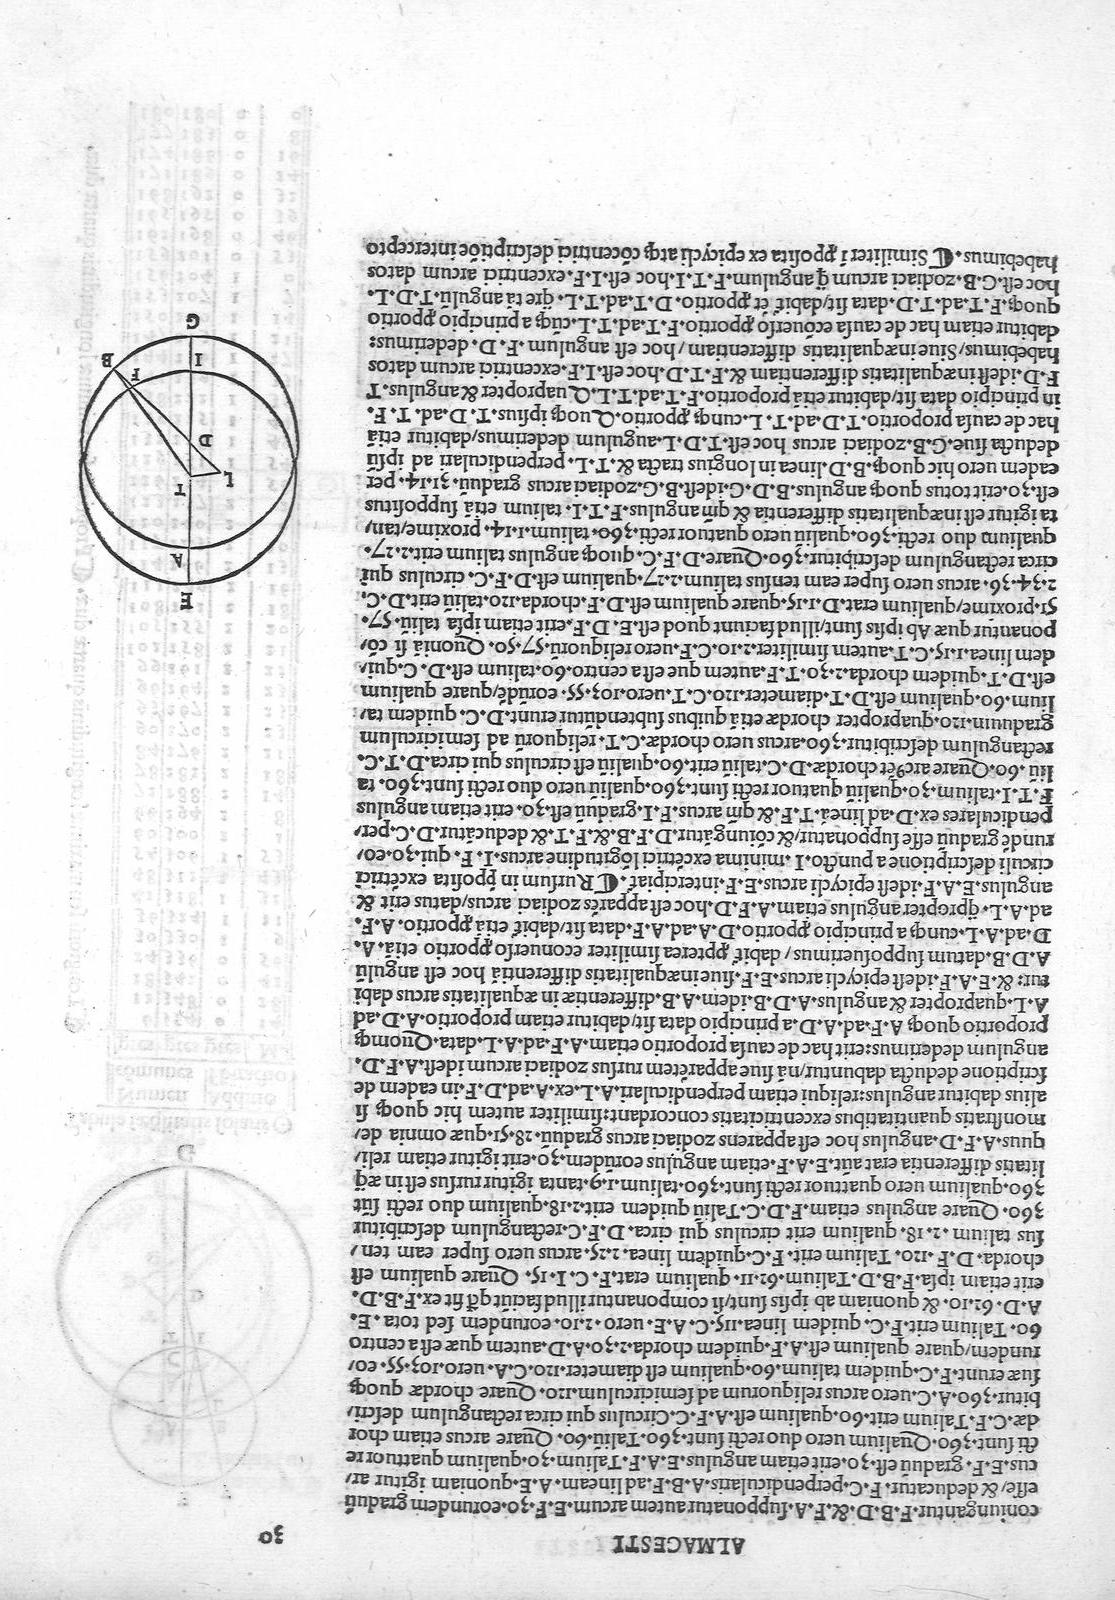 ALMAGESTI
30
coniungantur.F.B.D.&.F.A.supponatur autem arcum.E.F.30.eorundem graduū
esse/& deducatur.F.C.perpendicularis.A.B.F.ad lineam.A.E.quoniam igitur ar/
cus.E.F.graduū est.30.erit etiam angulus.E.A.F.Talium.30.qualium quattuor re
cti sunt.360.Qualium uero duo recti sunt.360.Taliū.60. Quare arcus etiam chor
dæ.C.F.Talium erit.60.qualium est.A.F.C.Circulus qui circa rectangulum descri/
bitur.360.A.C.uero arcus reliquorum ad semicirculum.120. Quare chordæ quoq;
suæ erunt.F.C.quidem talium.60.qualium est diameter.120.C.A.uero.103.55.eo/
rundem/quare qualium est.A.F.quidem chorda.2.30.A.D.autem quæ est a centro
60.Talium erit.F.C.quidem linea.115.C.A.E.uero.2.10.eorundem sed tota.E.
A.D.62.10.& quoniam ab ipsis sunt/si componantur illud faciūt qđ fit ex.F.B.D.
erit etiam ipsa.F.B.D.Talium.62.11.qualium erat.F.C.1.15. Quare qualium est
chorda.D.F.120.Talium erit.F.C.quidēm linea.2.25.arcus uero super eam ten/
sus talium.2.18.qualium erit circulus qui circa.D.F.C.rectangulum describitur
360.Quare angulus etiam.F.D.C.Taliū quidem erit.2.18.qualium duo recti sūt
360.qualium uero quattuor recti sunt.360.talium.1.9.tanta igitur rursus est in æq̄
litatis differentia erat aūt.E.A.F.etiam angulus eorūdem.30.erit igitur etiam reli/
quus.A.F.D.angulus hoc est apparens zodiaci arcus graduū.28.51.quæ omnia de/
monstratis quantitatibus excentricitatis concordant:similiter autem hic quoq; si
alius dabitur angulus:reliqui etiam perpendiculari.A.L.ex.A.ad.D.F.in eadem de
scriptione deducta dabuntur/nā siue apparētem rursus zodiaci arcum idest.A.F.D.
angulum dederimus:erit hac de causa proportio etiam.A.F.ad.A.L.data.Quomq;
proportio quoq; A.F.ad.A.D.a principio data sit/dabitur etiam proportio.A.D.ad
A.L.quapropter & angulus.A.D.B.idem.A.B.differentiæ in æqualitatis arcus dabi
tur: & E.A.F.idest epicycli arcus.E.F.siue inæqualitatis differentiā hoc est angulū
A.D.B.datum supposuerimus/ dabit̄ ꝓpterea similiter econuerso ꝓportio etiā.A.
D.ad.A.L.cunq; a principio ꝓportio.D.A.ad.A.F.data sit/dabit̄ etiā ꝓportio.A.F.
ad.A.L.q̄propter angulus etiam.A.F.D.hoc est apparēs zodiaci arcus/datus erit &
angulus.E.A.F.idest epicycli arcus.E.F.intercipiat̄. ¶ Rursum in ꝓposita excētrici
circuli descriptione a puncto.I.minima excētrici lōgitudine arcus.I.F.qui.30.eo/
rundē graduū esse supponatur/& cōiungātur.D.F.B.&.F.T.& deducātur.D.C.per/
pendiculares ex.D.ad lineā.T.F.& qm̄ arcus.F.I.graduū est.30.erit etiam angulus
F.T.I.talium.30.qualiū quatuor recti sunt.360.qualiū uero duo recti sunt.360.ta
liū.60.Quare arc⁹ ēt chordæ.D.C.taliū erit.60.qualiū est circulus qui circa.D.T.C.
rectangulum describitur.360.arcus uero chordæ.C.T.reliquorū ad semicirculum
graduum.120.quapropter chordæ etiā quibus subtendūtur erunt.D.C.quidem ta/
lium.60.qualium est.D.T.diameter.120.C.T.uero.103.55.eorūdē/quare qualium
est.D.T.quidem chorda.2.30.T.F.autem que est a centro.60.talium est.D.C.qui/
dem linea.1.15.C.T.autem similiter.2.10.C.F.uero reliquorū.57.50. Quoniā si cō/
ponantur quæ Ab ipsis sunt/illud faciunt quod est.E.D.F.erit etiam ipsa taliū.57.
51.proxime/qualium erat.D.1.15.quare qualium est.D.F.chorda.120.taliū erit.D.C.
2.34.36.arcus uero super eam tensus talium.2.27.qualium est.D.F.C.circulus qui
circa rectangulum describitur.360.Quare.D.F.C.quoq; angulus talium erit.2.27.
qualium duo recti.360.qualiū uero quatuor recti.360.talium.1.14.proxime/tan/
ta igitur est in æqualitatis differentia & qm̄ angulus.F.T.I.talium etiā suppositus
est.30.erit totus quoq; angulus.B.D.G.idest.B.G.zodiaci arcus graduū.31.14. per
eadem uero hic quoq;.B.D.linea in longius tracta & T.L.perpendiculari ad ipsū
deducta siue.G.B.zodiaci arcus hoc est.T.D.L.angulum dederimus/dabitur etiā
hac de causa proportio.T.D.ad.T.L.cunq; ꝓportio.Quoq; ipsius.T.D.ad.T.F.
in principio data sit/dabitur etiā proportio.F.T.ad.T.L.Quapropter & angulus.T
F.D.idest in æqualitatis differentiam &.F.T.D.hoc est.I.F.excentrici arcum datos
habebimus/Siue inæqualitatis differentiam/hoc est angulum.F.D.dederimus:
dabitur etiam hac de causa ecōuerso ꝓportio.F.T.ad.T.L.cūq; a principio ꝓportio
quoq;.F.T.ad.T.D.data sit/dabit̄ ēt ꝓportio.D.T.ad.T.L.qre tā angulū.T.D.L.
hoc est.G.B.zodiaci arcum q̄ angulum.F.T.I.hoc est.I.F.excentrici arcum datos
habebimus. ¶ Similiter ī ꝓposita ex epicycli atq; cōcentrici descriptiōe intercepto
E
A
T
L
D
F
B
I
G